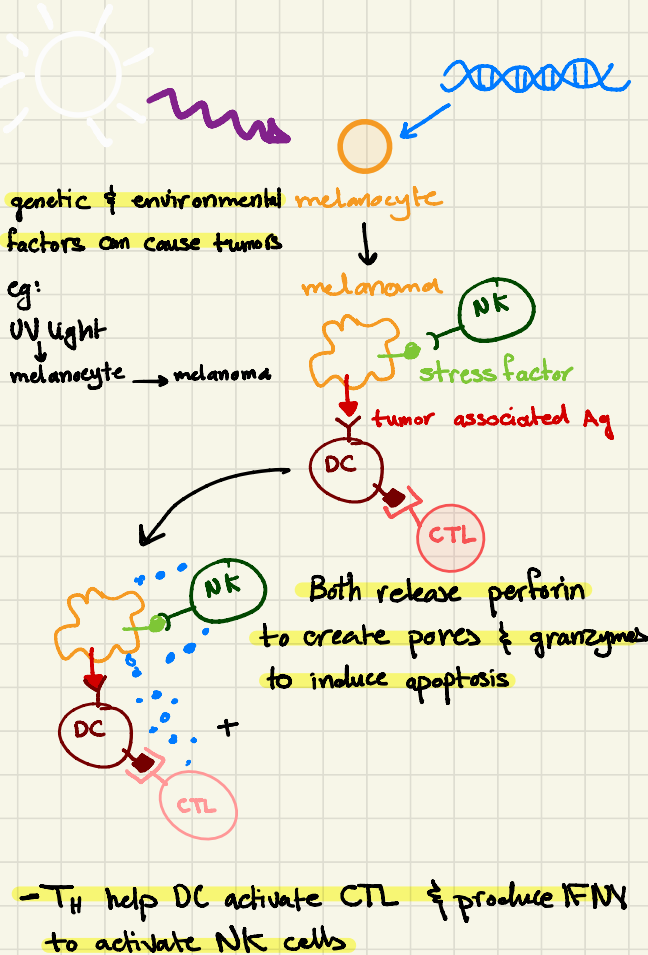 genetic & environmental
factors can cause tumors
eg:
UV light
↓
melanocyte → melanoma
melanocyte
melanoma
NK
stress factor
tumor associated Ag
DC
CTL
NK
Both release perforin
to create pores & granzymes
to induce apoptosis
DC
+
CTL
- TH help DC activate CTL & produce IFNγ
to activate NK cells